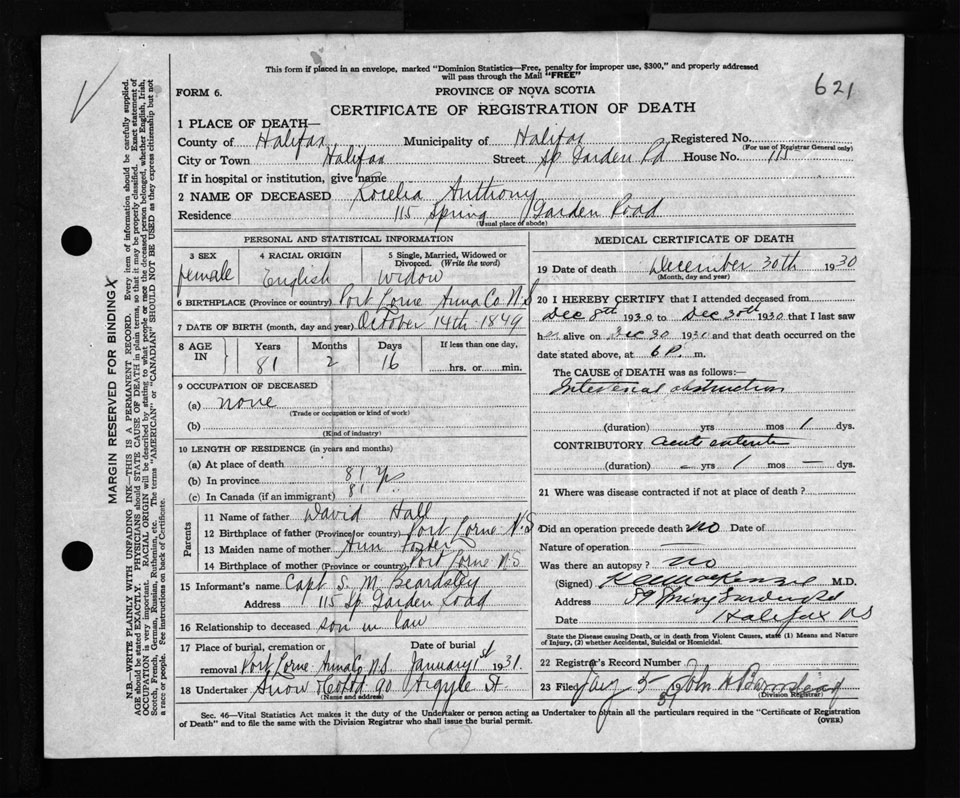 This form if placed in an envelope, marked "Dominion Statistics—Free, penalty for improper use, $300," and properly addressed
will pass through the Mail "FREE"
621
FORM 6.
PROVINCE OF NOVA SCOTIA
CERTIFICATE OF REGISTRATION OF DEATH
1 PLACE OF DEATH—
County of Halifax Municipality of Halifax Registered No.
(For use of Registrar General only)
City or Town Halifax Street Sp Garden Rd House No. 115
If in hospital or institution, give name
2 NAME OF DECEASED Rocelia Anthony
Residence 115 Spring Garden Road
(Usual place of abode)
PERSONAL AND STATISTICAL INFORMATION
3 SEX 4 RACIAL ORIGIN 5 Single, Married, Widowed or Divorced. (Write the word)
female English Widow
6 BIRTHPLACE (Province or country) Port Lorne Anna Co N.S
7 DATE OF BIRTH (month, day and year) October 14th 1849
8 AGE IN Years Months Days If less than one day,
81 2 16 hrs. or min.
9 OCCUPATION OF DECEASED
(a) none
(Trade or occupation or kind of work)
(b)
(Kind of industry)
10 LENGTH OF RESIDENCE (in years and months)
(a) At place of death
(b) In province 81 yrs
(c) In Canada (if an immigrant) 81
Parents
11 Name of father David Hall
12 Birthplace of father (Province or country) Port Lorne N.S
13 Maiden name of mother Ann Foster
14 Birthplace of mother (Province or country) Port Lorne N.S
15 Informant's name Capt. S. M. Beardsley
Address 115 Sp Garden Road
16 Relationship to deceased son in law
17 Place of burial, cremation or removal Date of burial
Port Lorne Anna Co N.S. January 1st 1931.
18 Undertaker Snow & Co Ltd 90 Argyle St
(Name and address)
MEDICAL CERTIFICATE OF DEATH
19 Date of death December 30th 1930
(Month, day and year)
20 I HEREBY CERTIFY that I attended deceased from
Dec 8th 1930 to Dec 30th 1930 that I last saw
her alive on Dec 30 1930 and that death occurred on the
date stated above, at 6 P. m.
The CAUSE of DEATH was as follows:—
Intestinal obstruction
(duration) yrs mos 1 dys.
CONTRIBUTORY acute enteritis
(duration) – yrs 1 mos — dys.
21 Where was disease contracted if not at place of death?
Did an operation precede death no Date of
Nature of operation
Was there an autopsy? no
(Signed) MacKenzie M.D.
Address 89 Spring Garden Rd
Date Halifax NS
State the Disease causing Death, or in death from Violent Causes, state (1) Means and Nature
of Injury, (2) whether Accidental, Suicidal or Homicidal.
22 Registrar's Record Number
23 Filed Jany 5 31 John A
(Division Registrar)
Sec. 46—Vital Statistics Act makes it the duty of the Undertaker or person acting as Undertaker to obtain all the particulars required in the "Certificate of Registration
of Death" and to file the same with the Division Registrar who shall issue the burial permit.
(OVER)
MARGIN RESERVED FOR BINDING
N.B.—WRITE PLAINLY WITH UNFADING INK—THIS IS A PERMANENT RECORD. Every item of information should be carefully supplied.
AGE should be stated EXACTLY. PHYSICIANS should STATE CAUSE OF DEATH in plain terms, so that it may be properly classified. Exact statement of
OCCUPATION is very important. RACIAL ORIGIN will be described by stating to what people or race the deceased person belonged, whether English, Irish,
Scotch, French, German, Russian, Ruthenian, etc. The terms "AMERICAN" or "CANADIAN" SHOULD NOT BE USED as they express citizenship but not
a race or people. See instructions on back of Certificate.